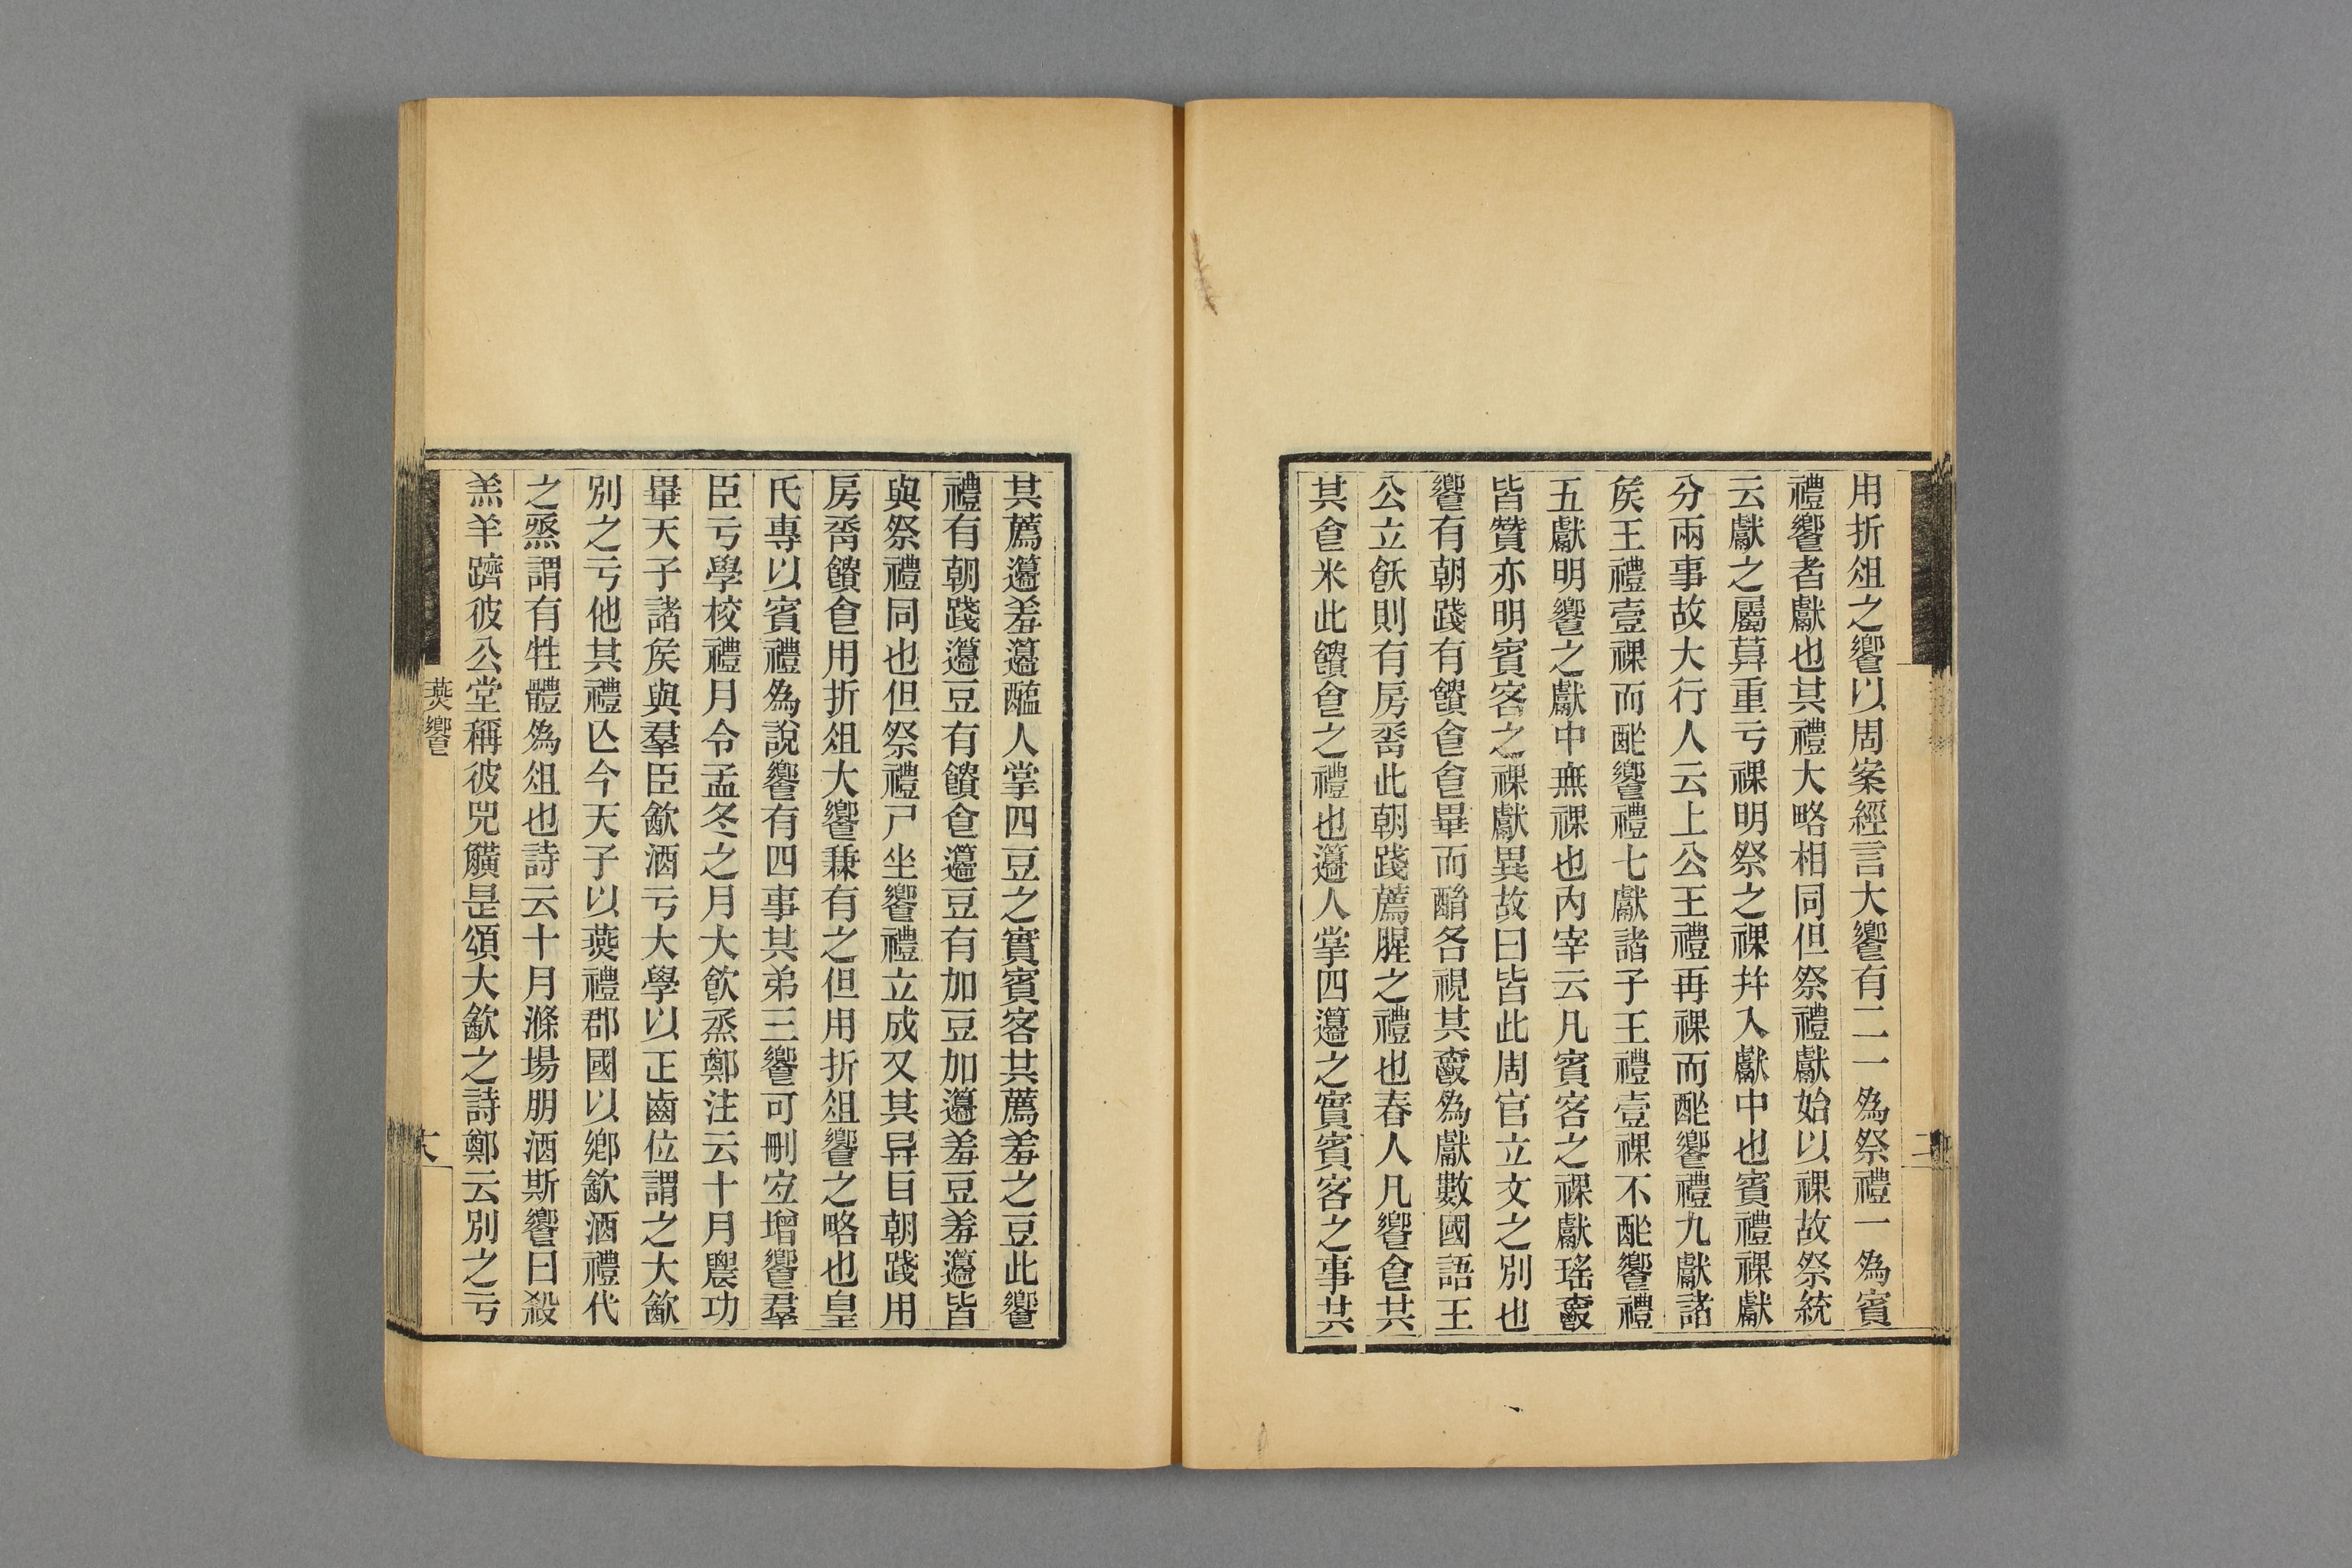 用折俎之饗以周案經言大饗有二一為祭禮一為賓
禮饗者獻也其禮大略相同但祭禮獻始以祼故祭統
云獻之屬莫重亏祼明祭之祼幷入獻中也賓禮祼獻
分兩事故大行人云上公王禮再祼而酢饗禮九獻諸
矦王禮壹祼而酢饗禮七獻諸子王禮壹祼不酢饗禮
五獻明饗之獻中無祼也內宰云凡賓客之祼獻瑤𤔲
皆贊亦明賓客之祼獻異故曰皆此周官立文之別也
饗有朝踐有饋𠊊𠊊畢而酳各視其𤔲為獻數國語王
公立飫則有房脀此朝踐薦腥之禮也舂人凡饗𠊊共
其𠊊米此饋𠊊之禮也籩人掌四籩之實賓客之事共
其薦籩羞籩醢人掌四豆之實賓客共薦羞之豆此饗
禮有朝踐籩豆有饋𠊊籩豆有加豆加籩羞豆羞籩皆
與祭禮同也但祭禮尸坐饗禮立成又其异𠯑朝踐用
房脀饋𠊊用折俎大饗兼有之但用折俎饗之略也皇
氏專以賓禮為說饗有四事其弟三饗可刪宐增饗羣
臣亏學校禮月令孟冬之月大飮烝鄭注云十月農功
畢天子諸矦與羣臣㱃酒亏大學以正齒位謂之大㱃
別之亏他其禮亾今天子以燕禮郡國以鄉㱃酒禮代
之烝謂有牲體為俎也詩云十月滌場朋酒斯饗曰殺
羔羊躋彼公堂稱彼兕觵是頌大㱃之詩鄭云別之亏
燕饗